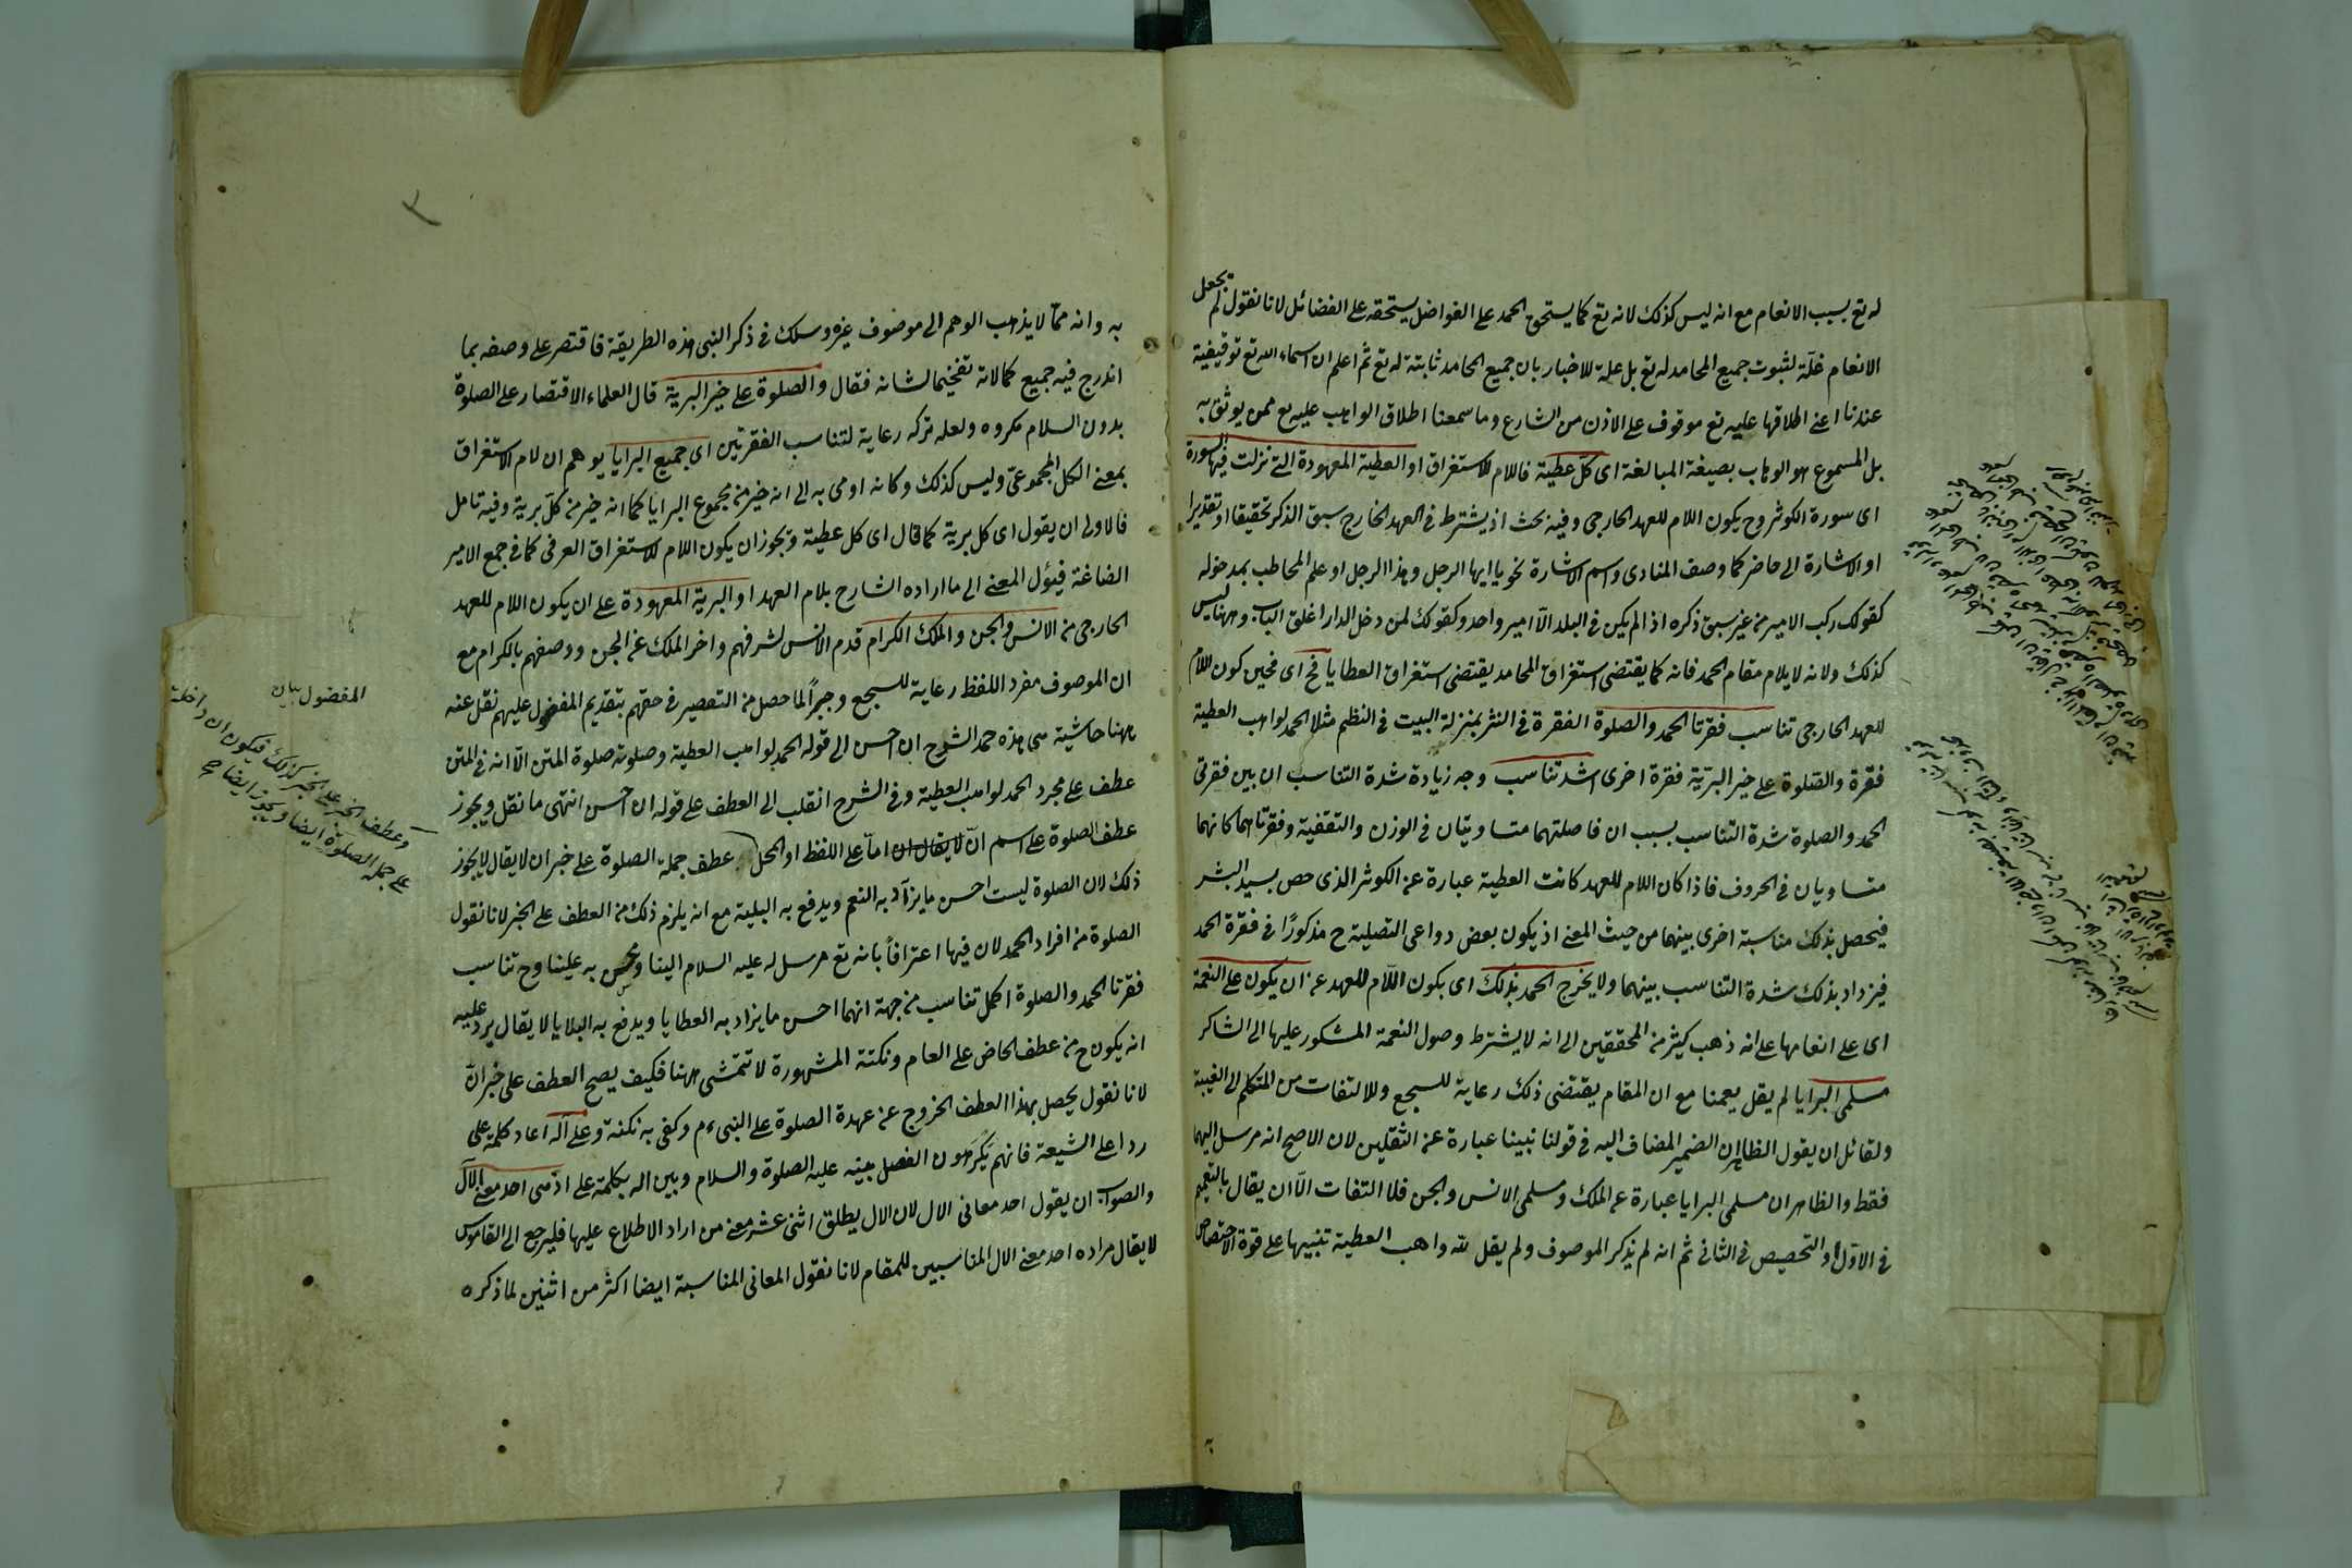 له تع بسبب الانعام مع انه ليس كذلك لانه تع كما يستحق الحمد على الفواضل يستحقه على الفضائل لانا نقول لم يجعل
الانعام علّة لثبوت جميع المحامد له تع بل علة للاخبار بان جميع المحامد ثابتة له تع ثم اعلم ان اسماء الله تع توقيفية
عندنا اعنى اطلاقها عليه تع موقوف على الاذن من الشارع وما سمعنا اطلاق الواهب عليه تع ممن يوثق به
بل المسموع هو الوهاب بصيغة المبالغة اى كل عطية فاللام للاستغراق او العطية المعهودة التى نزلت فيها سورة
اى سورة الكوثر وح يكون اللام للعهد الخارجى وفيه بحث اذ يشترط فى العهد الخارج سبق الذكر تحقيقا او تقديرا
او الاشارة الى حاضر كما وصف المنادى واسم الاشارة نحو يا ايها الرجل وهذا الرجل او علم المخاطب بمدخوله
كقولك ركب الامير من غير سبق ذكره اذا لم يكن فى البلد الّا امير واحد وكقولك لمن دخل الدار اغلق الباب وههنا ليس
كذلك ولانه لا يلام مقام الحمد فانه كما يقتضى استغراق المحامد يقتضى استغراق العطايا فح اى فحين كون اللام
للعهد الخارجى تناسب فقرتا الحمد والصلوة الفقرة فى النثر بمنزلة البيت فى النظم مثلا الحمد لواهب العطية
فقرة والصلوة على خير البريّة فقرة اخرى اشد تناسب وجه زيادة شدة التناسب ان بين فقرتى
الحمد والصلوة شدة التناسب بسبب ان فاصلتهما متساويتان فى الوزن والتقفية وفقرتاهما كانهما
متساويان فى الحروف فاذا كان اللام للعهد كانت العطية عبارة عن الكوثر الذى خص بسيد البشر
فيحصل بذلك مناسبة اخرى بينهما من حيث المعنى اذ يكون بعض دواعى التصلية ح مذكورًا فى فقرة الحمد
فيزداد بذلك شدة التناسب بينهما ولا يخرج الحمد بذلك اى بكون اللّام للعهد عن ان يكون على النعمة
اى على انعامها على انه ذهب كثير من المحققين الى انه لا يشترط وصول النعمة المشكور عليها الى الشاكر
مسلمى البرايا لم يقل يعمنا مع ان المقام يقتضى ذلك رعاية للسجع وللالتفات من المتكلم الى الغيبة
ولقائل ان يقول الظاهر ان الضمير المضاف اليه فى قولنا نبينا عبارة عن الثقلين لان الاصح انه مرسل اليهما
فقط والظاهر ان مسلمى البرايا عبارة عن الملك ومسلمى الانس والجن فلا التفات الّا ان يقال بالتعميم
فى الاوّل او التخصيص فى الثانى ثم انه لم يذكر الموصوف ولم يقل لله واهب العطية تنبيها على قوة الاختصاص
به وانه ممّا لا يذهب الوهم الى موصوف غيره وسلك فى ذكر النبى هذه الطريقة فاقتصر على وصفه بما
اندرج فيه جميع كمالاته تفخيما لشانه فقال والصلوة على خير البرية قال العلماء الاقتصار على الصلوة
بدون السلام مكروه ولعله تركه رعاية لتناسب الفقرتين اى جميع البرايا يوهم ان لام الاستغراق
بمعنى الكل المجموعىّ وليس كذلك وكانه اومى به الى انه خير من مجموع البرايا كما انه خير من كل برية وفيه تامل
فالاولى ان يقول اى كل برية كما قال اى كل عطية ويجوز ان يكون اللام للاستغراق العرفى كما فى جمع الامير
الصاغة فيؤل المعنى الى ما اراده الشارح بلام العهد او البرية المعهودة على ان يكون اللام للعهد
الخارجى من الانس والجن والملك الكرام قدم الانس لشرفهم واخر الملك عن الجن ووصفهم بالكرام مع
ان الموصوف مفرد اللفظ رعاية للسجع وجبرًا لما حصل من التقصير فى حقهم بتقديم المفضول عليهم نقل عنه
ههنا حاشية هى هذه حمد الشرح ان احسن الى قوله الحمد لواهب العطية وصلوته صلوة المتن الّا انه فى المتن
عطف على مجرد الحمد لواهب العطية وفى الشرح انقلب الى العطف على قوله ان احسن انتهى ما نقل ويجوز
عطف الصلوة على اسم انّ لا يقال ان امّا على اللفظ او المحل عطف جملة الصلوة على خبر ان لا يقال لا يجوز
ذلك لان الصلوة ليست احسن ما يزاد به النعم ويدفع به البلية مع انه يلزم ذلك من العطف على الخبر لانا نقول
الصلوة من افراد الحمد لان فيها اعترافاً بانه تع مرسل له عليه السلام الينا به علينا وح تناسب
فقرتا الحمد والصلوة اكمل تناسب من جهة انهما احسن ما يزاد به العطايا ويدفع به البلايا لا يقال يرد عليه
انه يكون ح من عطف الخاص على العام ونكتته المشهورة لا تتمشى ههنا فكيف يصح العطف على خبر انّ
لانا نقول يحصل بهذا العطف الخروج عن عهدة الصلوة على النبى ءم وكفى به نكتة وعلى آله اعاد كلمة على
ردا على الشيعة فانهم يكرهون الفصل بينه عليه الصلوة والسلام وبين اله بكلمة على احد معنى الآل
والصواب ان يقول احد معانى الال لان الال يطلق اثنى عشر معنى من اراد الاطلاع عليها فليرجع الى القاموس
لا يقال مراده احد معنى الال المناسبين للمقام لانا نقول المعانى المناسبة ايضا اكثر من اثنين لما ذكره
المفضول بيان
وعطف الخبر على الخبر كذلك فيكون ان داخلة
على جملة الصلوة ايضا ويجوز ايضا